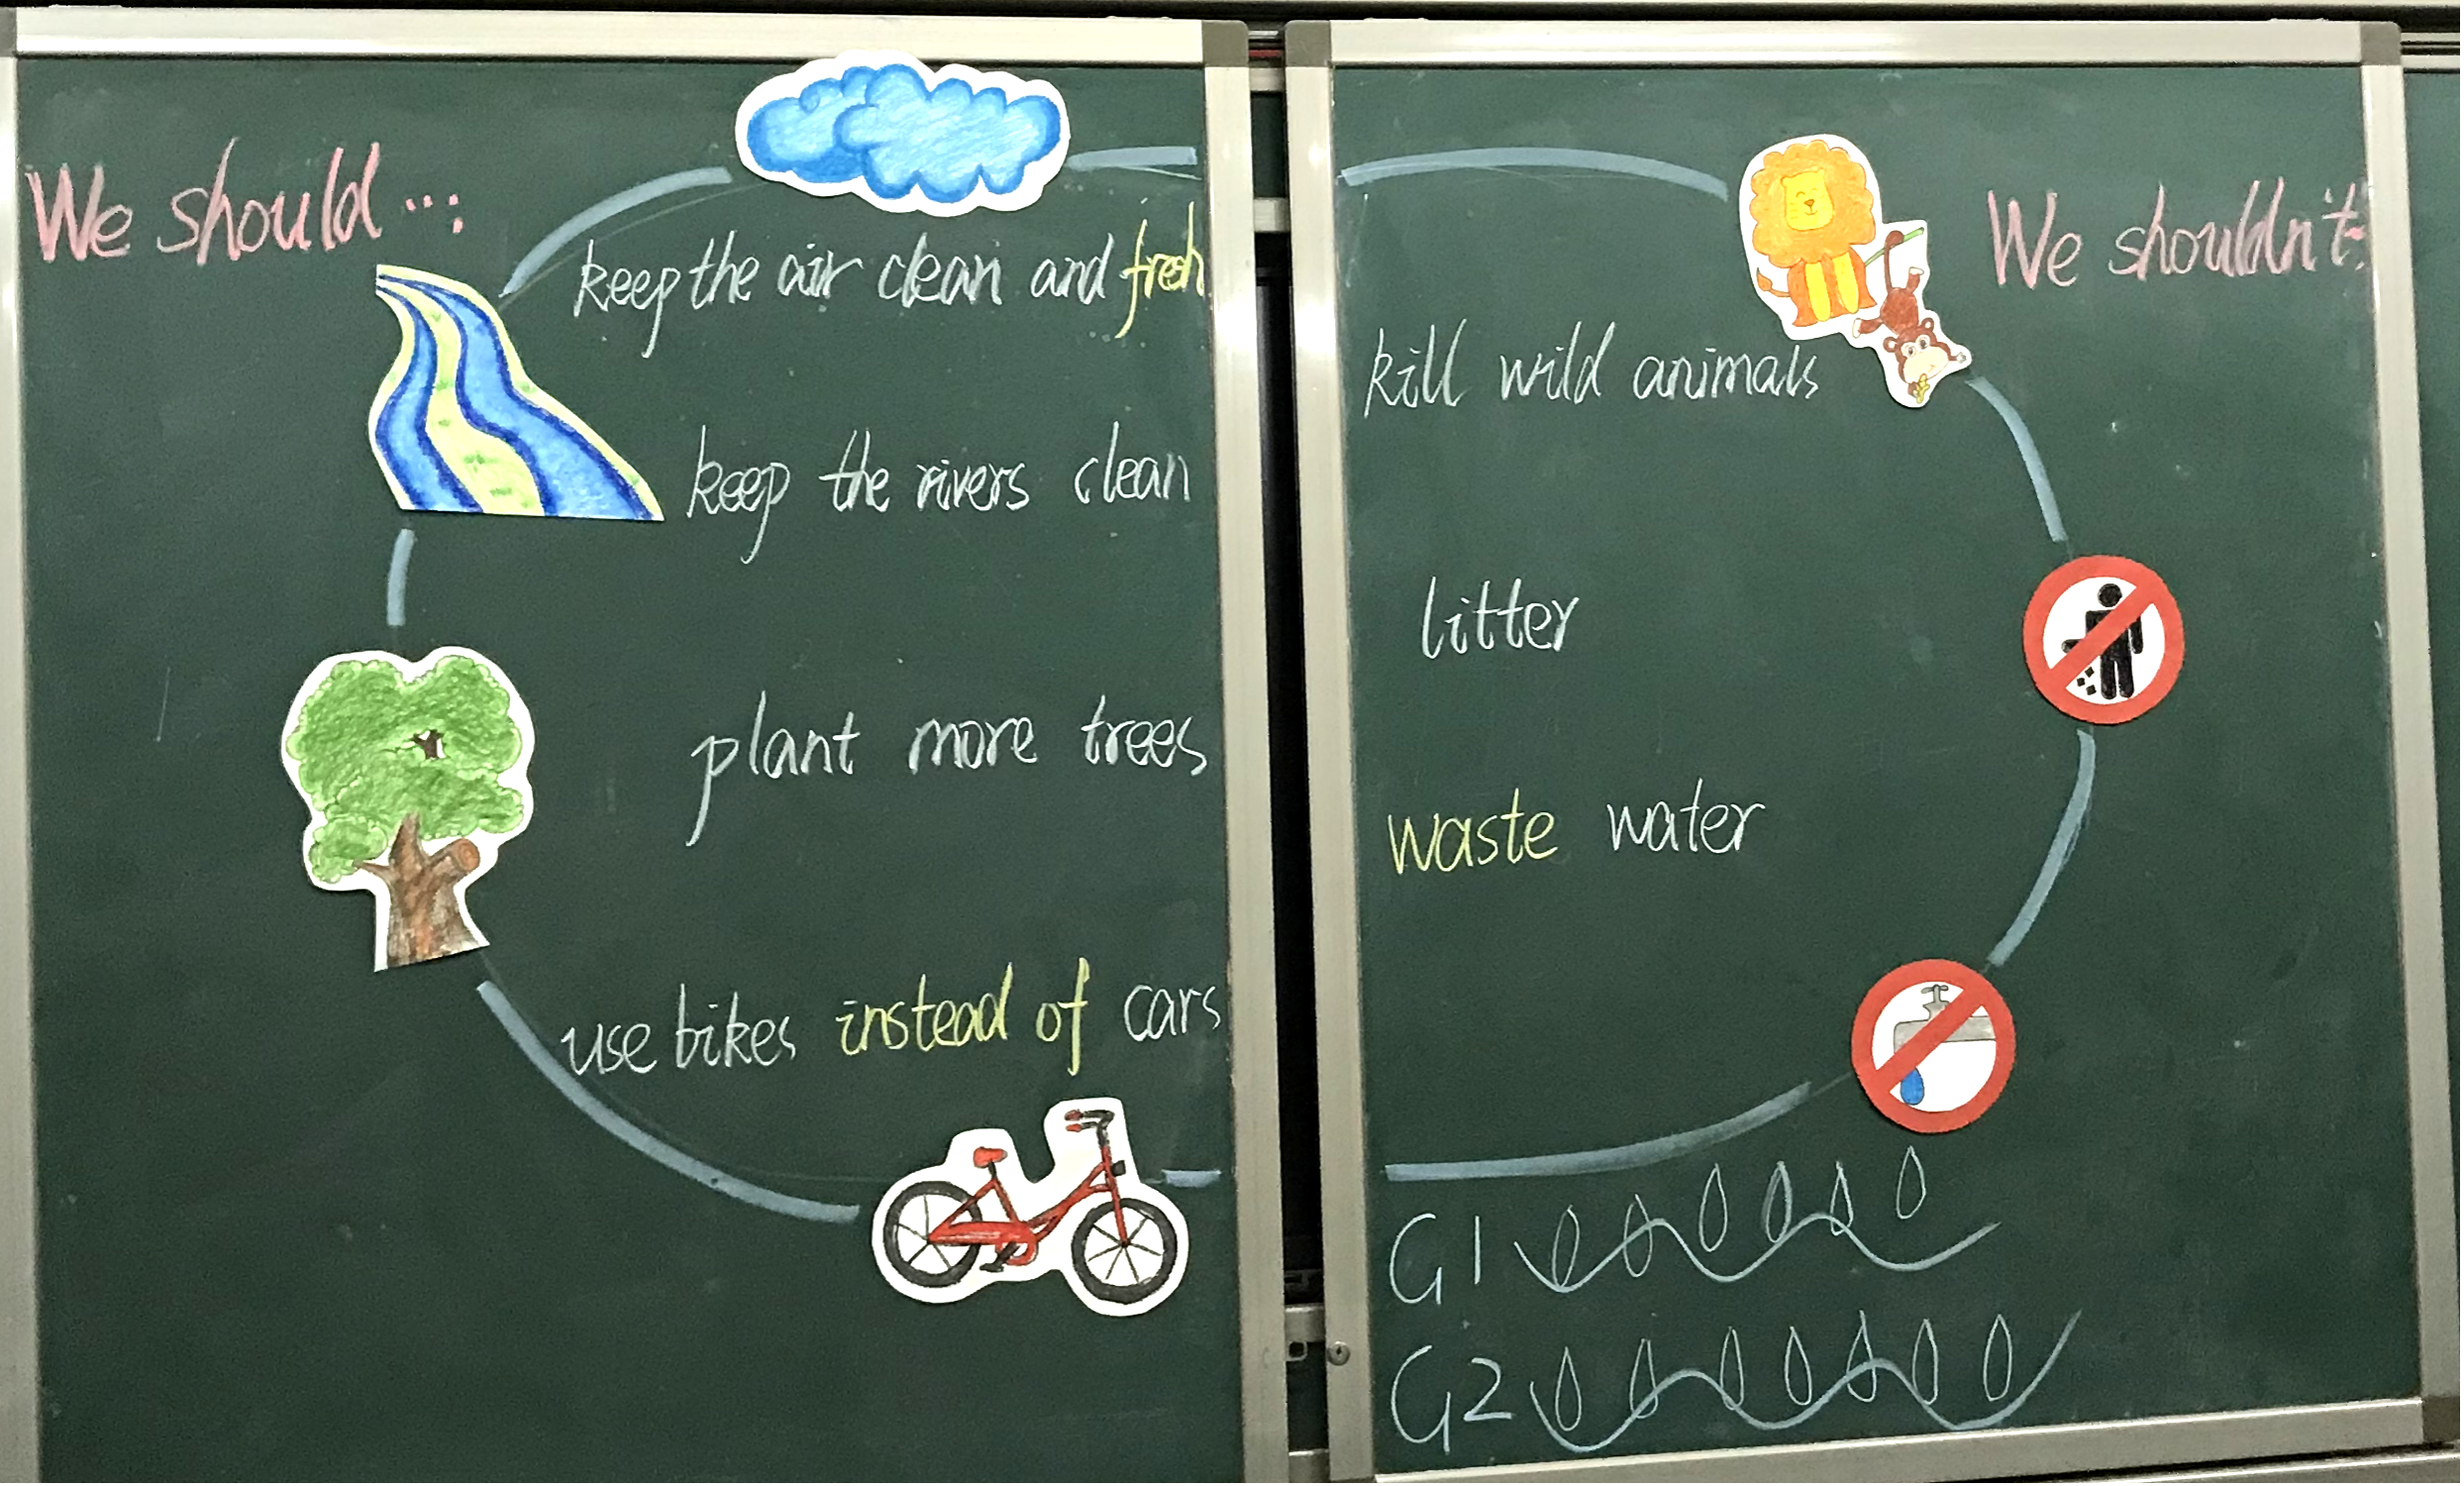 We should...:
keep the air clean and fresh
keep the rivers clean
plant more trees
use bikes instead of cars
We shouldn't:
kill wild animals
litter
waste water
G1
G2